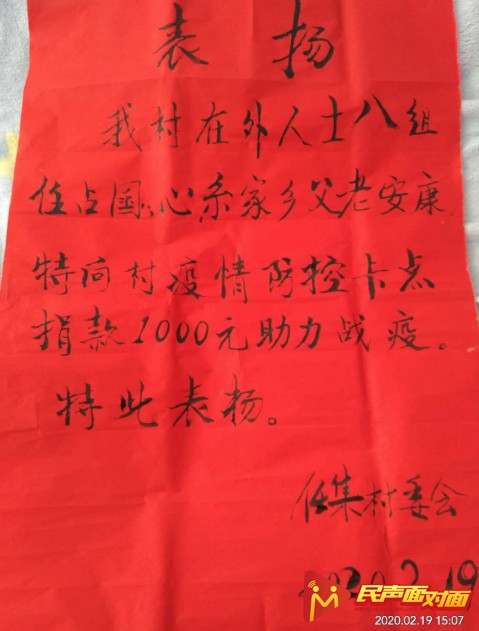 表扬
我村在外人士八组
任占国心系家乡父老安康
特向村疫情防控卡点
捐款1000元助力战疫。
特此表扬。
任集村委会
2020.2.19
民声面对面
2020.02.19 15:07